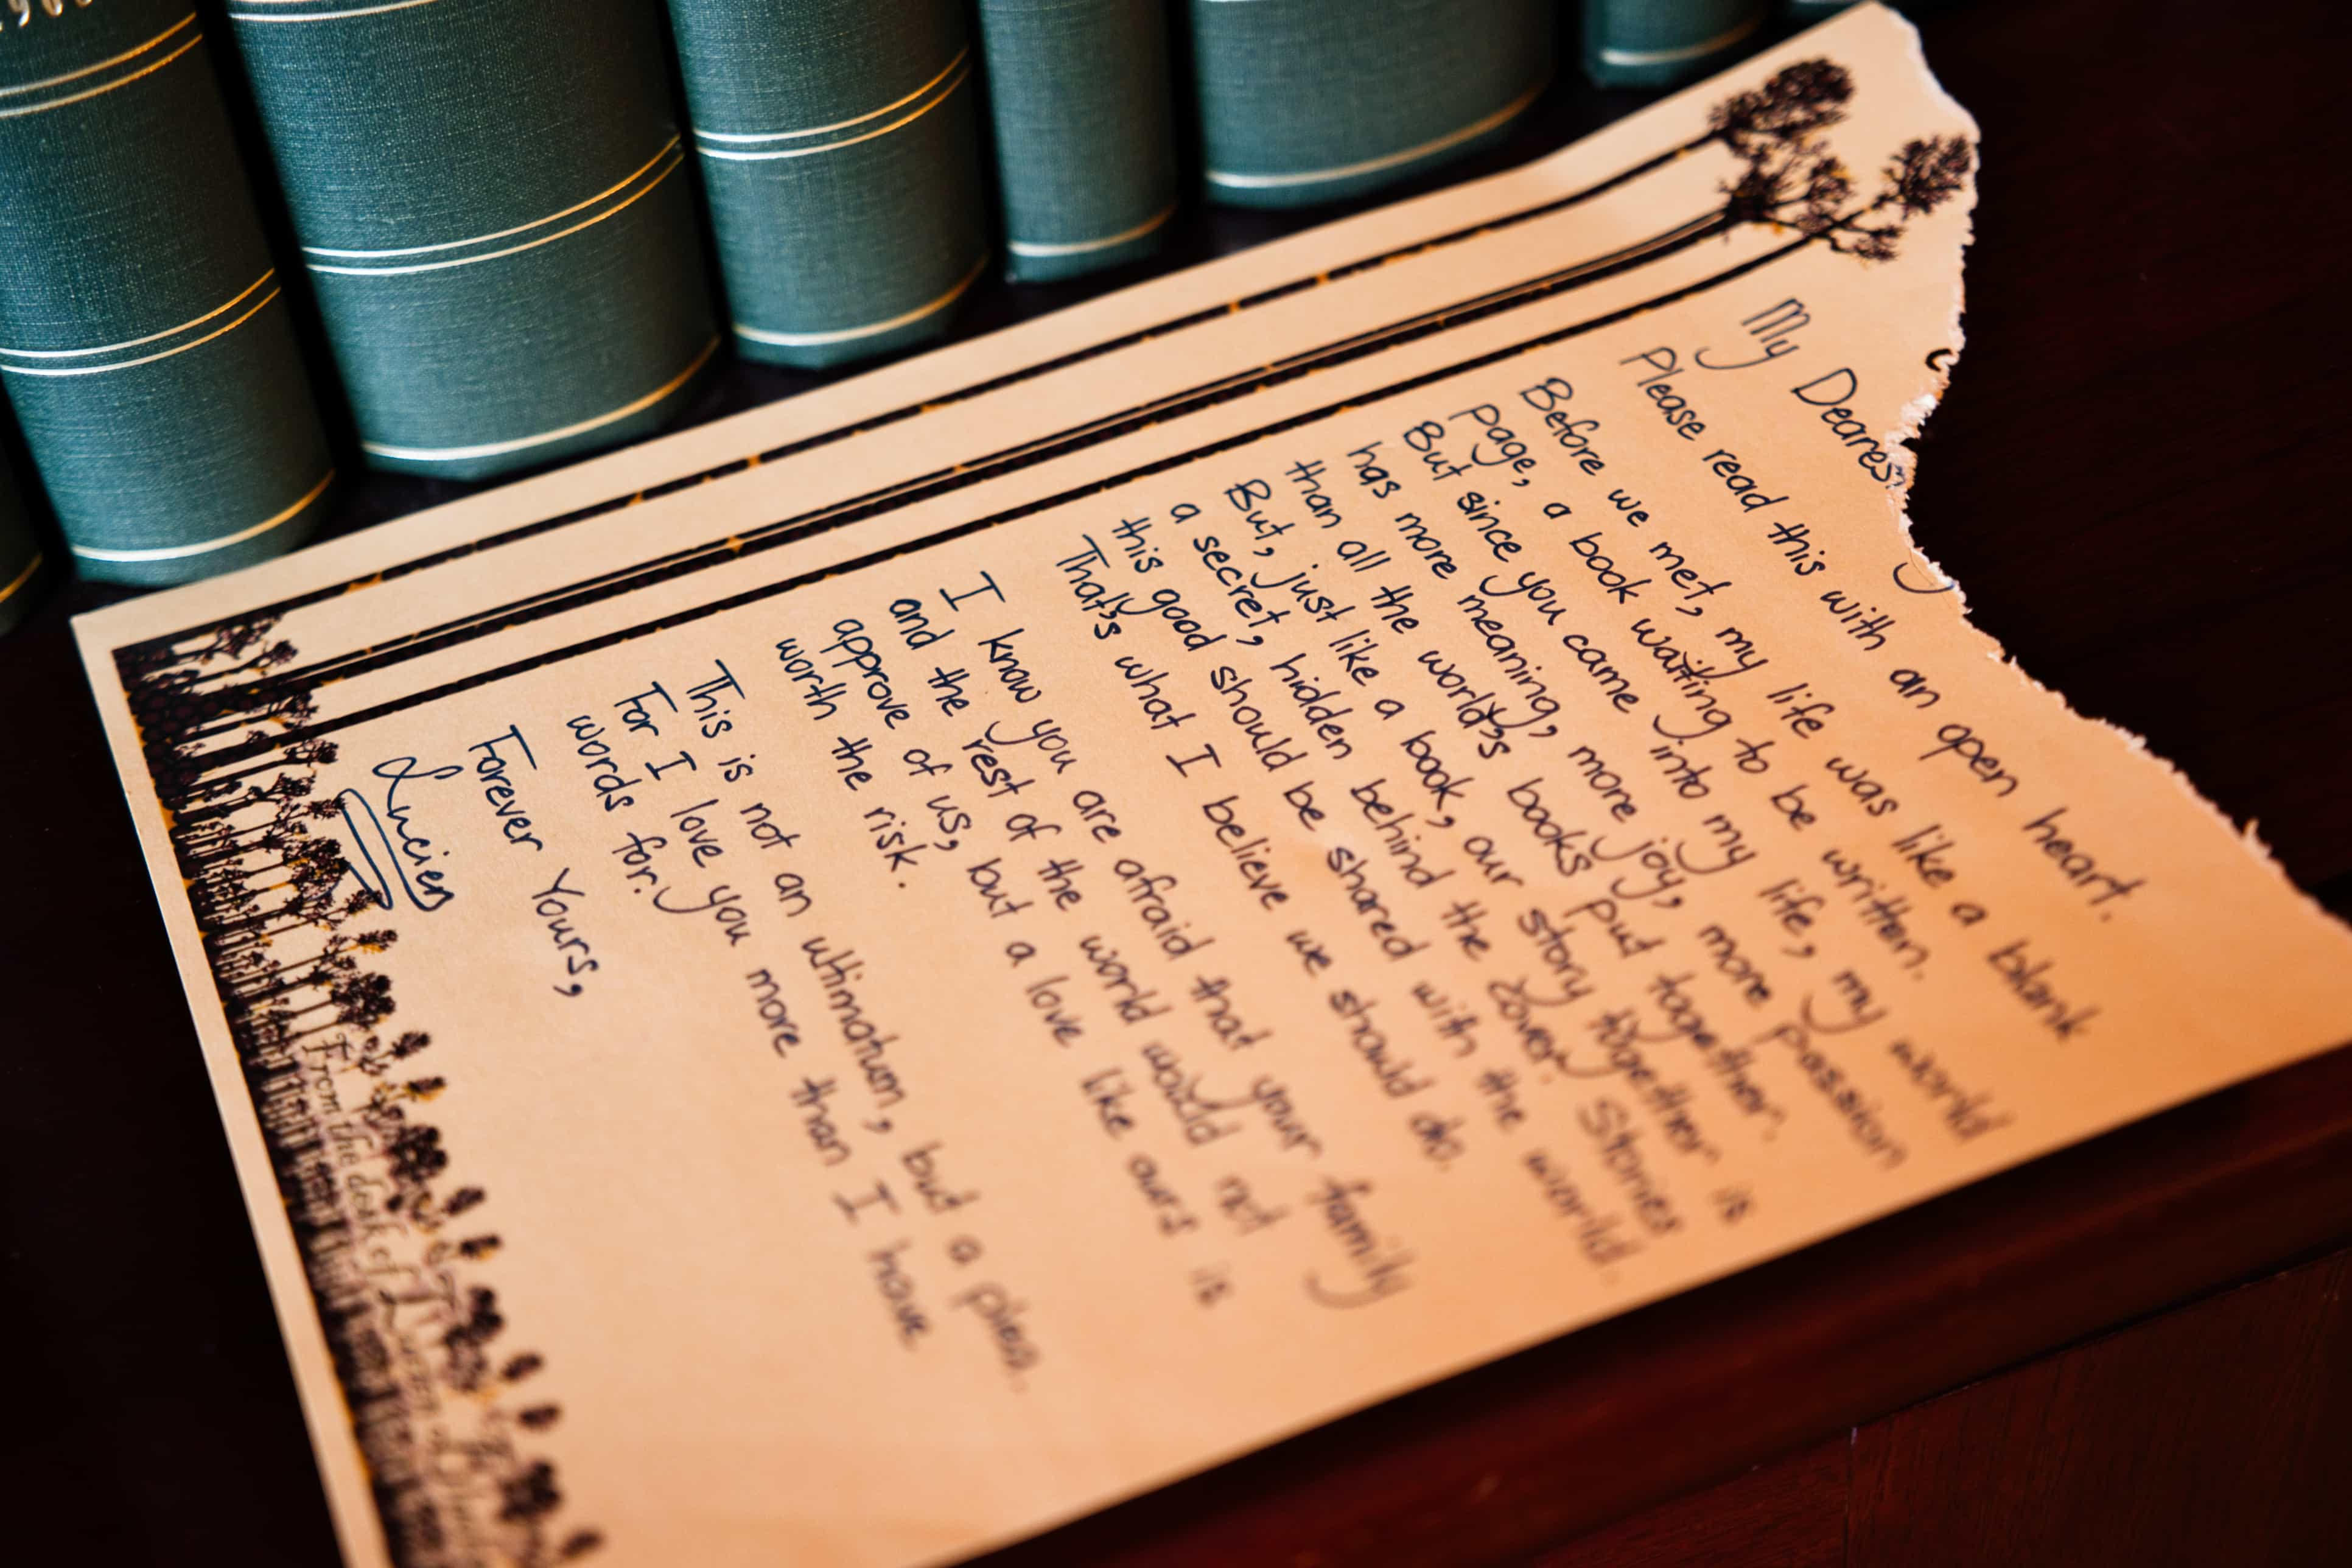 My Dearest
Please read this with an open heart.
Before we met, my life was like a blank
page, a book waiting to be written.
But since you came into my life, my world
has more meaning, more joy, more passion
than all the world's books put together.
But, just like a book, our story together is
a secret, hidden behind the cover. Stories
this good should be shared with the world.
That's what I believe we should do.
I know you are afraid that your family
and the rest of the world would not
approve of us, but a love like ours is
worth the risk.
This is not an ultimatum, but a plea.
For I love you more than I have
words for.
Forever Yours,
Lucien
From the desk of Lucien